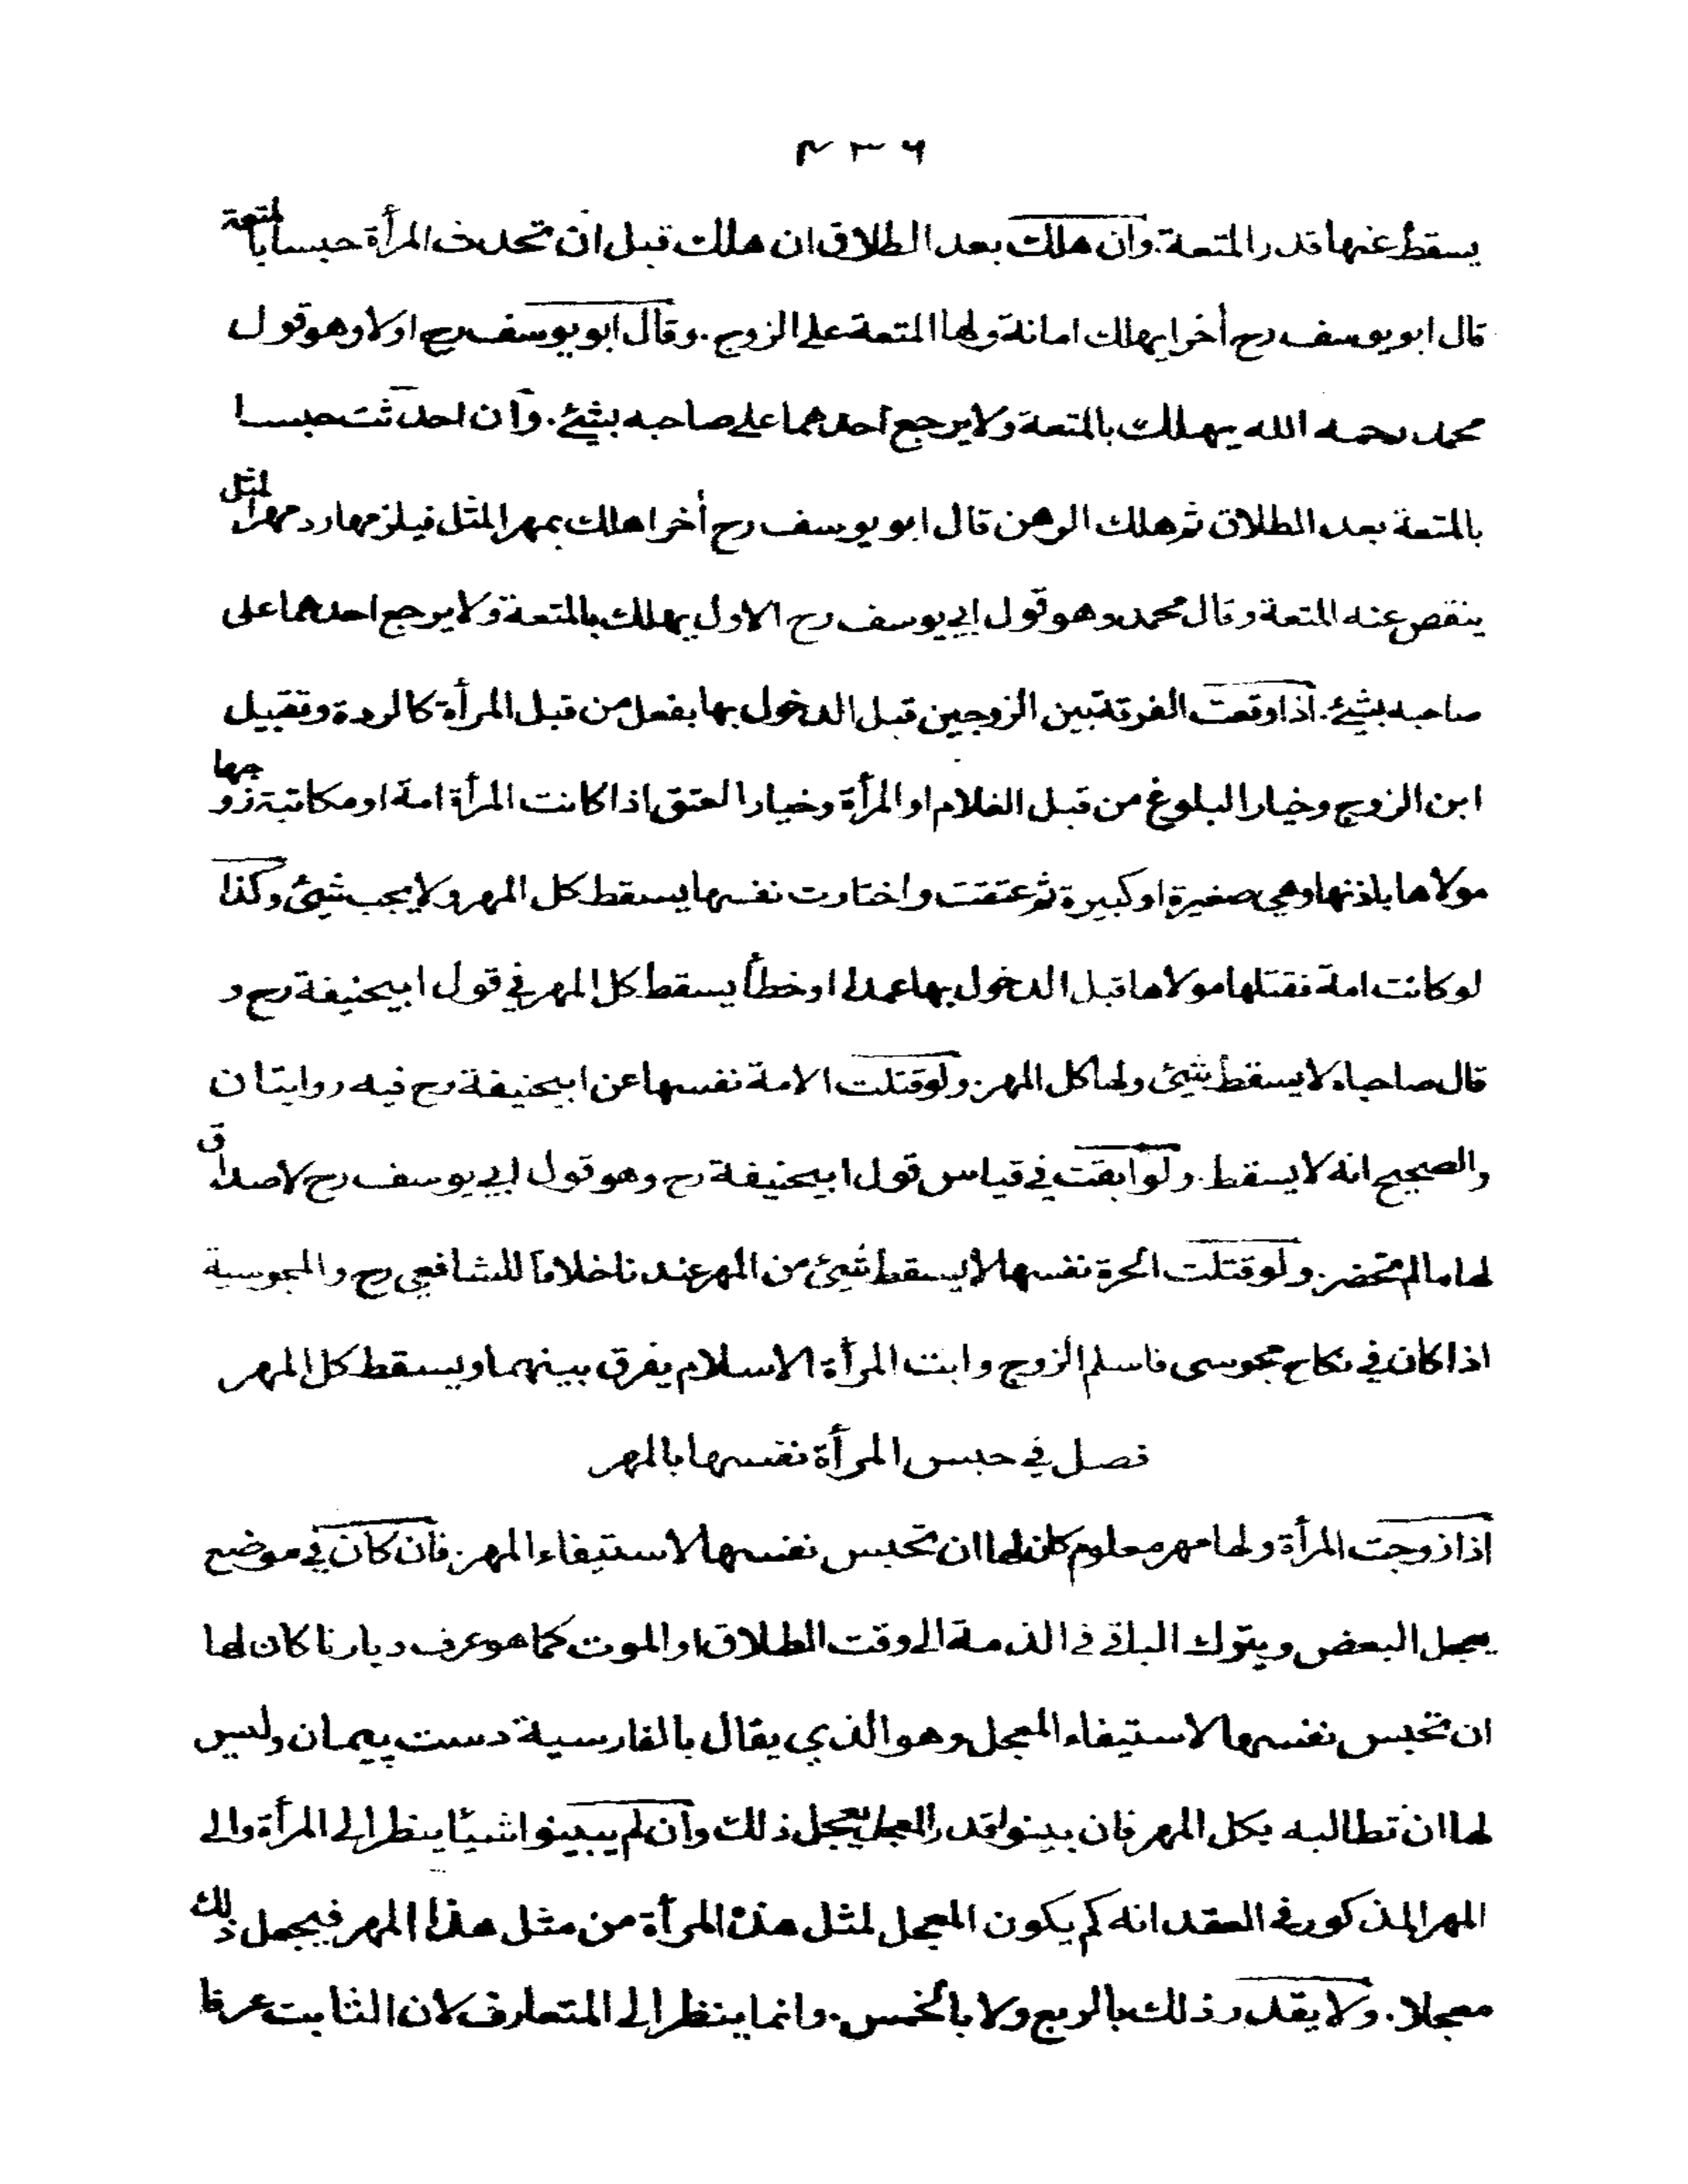 ۴۳۶
يسقط عنها قدر المتعة. وان هلك بعد الطلاق ان هلك قبل ان تحدث المرأة حبسا بالمتعة
قال ابو يوسف رح أخرا يهلك امانة ولها المتعة على الزوج. وقال ابو يوسف رح اولا وهو قول
محمد رحمه الله يهلك بالمتعة ولا يرجع احدهما على صاحبه بشيء. وان احدثت حبسا
بالمتعة بعد الطلاق ثم هلك الرهن قال ابو يوسف رح أخرا هلك بمهر المثل فيلزمها رد مهر المثل
ينقص عنه المتعة وقال محمد وهو قول ابي يوسف رح الاول يهلك بالمتعة ولا يرجع احدهما على
صاحبه بشيء. اذا وقعت الفرقة بين الزوجين قبل الدخول بها بفعل من قبل المرأة كالردة وتقبيل
ابن الزوج وخيار البلوغ من قبل الغلام او المرأة وخيار العتق اذا كانت المرأة امة او مكاتبة زوجها
مولاها باذنها وهي صغيرة او كبيرة ثم عتقت واختارت نفسها يسقط كل المهر ولا يجب شيئ وكذا
لو كانت امة فقتلها مولاها قبل الدخول بها عمدا او خطأ يسقط كل المهر في قول ابيحنيفة رح و
قال صاحباه لا يسقط شيئ ولها كل المهر. ولو قتلت الامة نفسها عن ابيحنيفة رح فيه روايتان
والصحيح انه لا يسقط. ولو ابقت في قياس قول ابيحنيفة رح وهو قول ابي يوسف رح لا صداق
لها ما لم تحضر. ولو قتلت الحرة نفسها لا يسقط شيئ من المهر عندنا خلافا للشافعي رح والمجوسية
اذا كان في نكاح مجوسى فاسلم الزوج وابت المرأة الاسلام يفرق بينهما ويسقط كل المهر
فصل في حبس المرأة نفسها بالمهر
اذا زوجت المرأة ولها مهر معلوم كان لها ان تحبس نفسها لاستيفاء المهر. فان كان في موضع
يعجل البعض ويترك الباقي في الذمة الى وقت الطلاق او الموت كما هو عرف ديارنا كان لها
ان تحبس نفسها لاستيفاء المعجل وهو الذي يقال بالفارسية دست پيمان وليس
لها ان تطالبه بكل المهر فان بينوا قدر المعجل يعجل ذلك وان لم يبينوا شيئا ينظر الى المرأة والى
المهر المذكور في العقد انه كم يكون المعجل لمثل هذه المرأة من مثل هذا المهر فيجعل ذلك
معجلا. ولا يقدر ذلك بالربع ولا بالخمس. وانما ينظر الى المتعارف لان الثابت عرفا